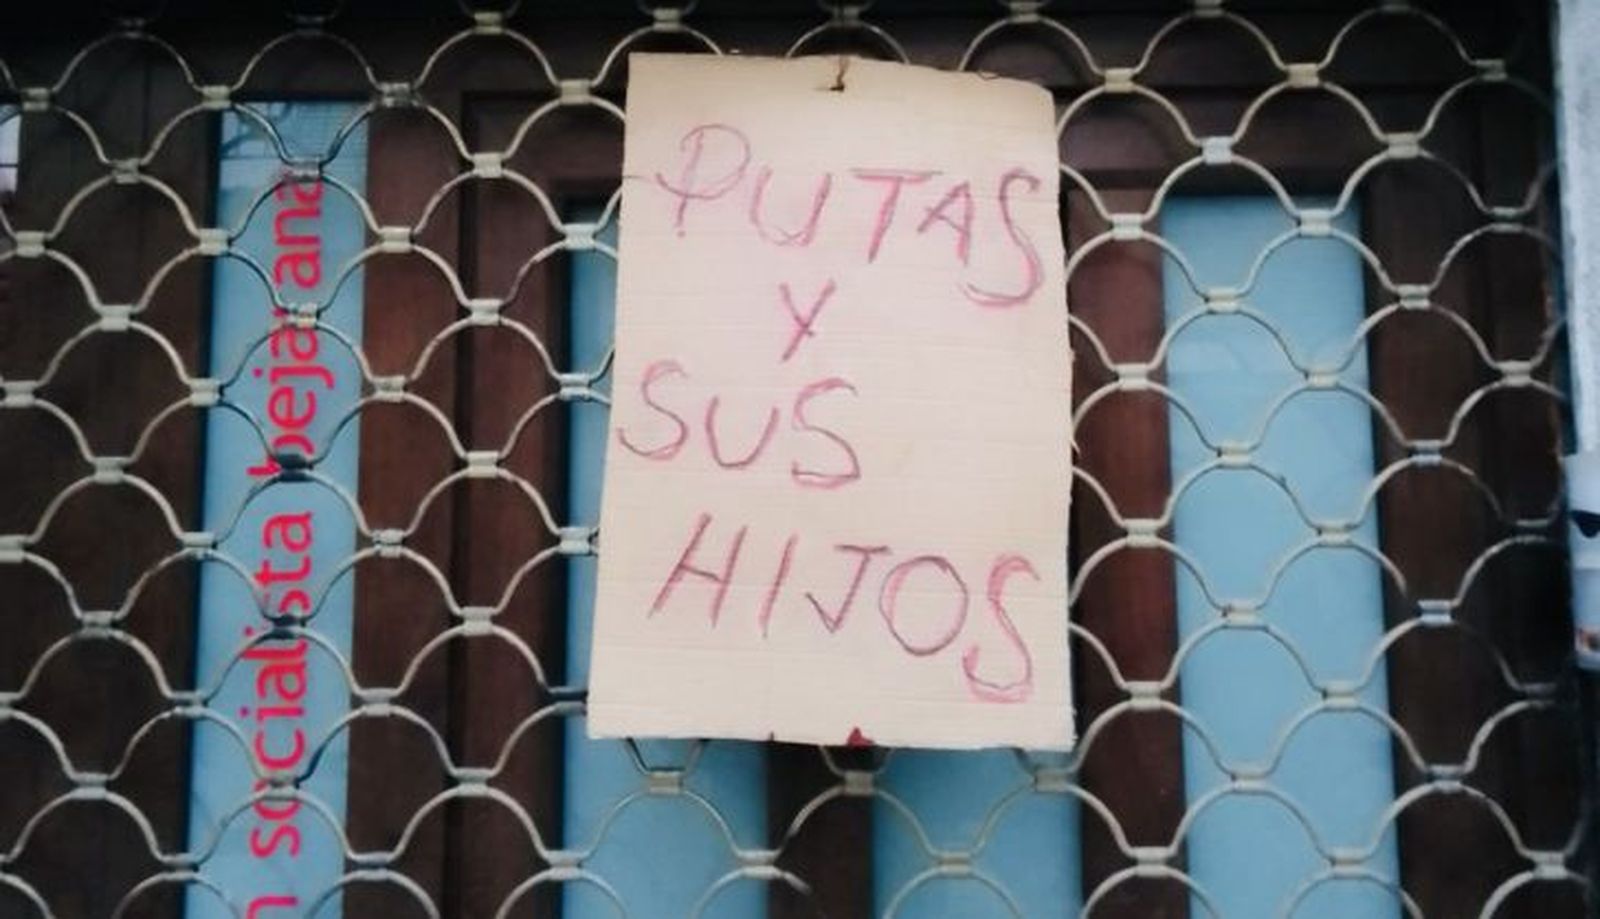 PUTAS
Y
SUS
HIJOS
n socialista bejarana